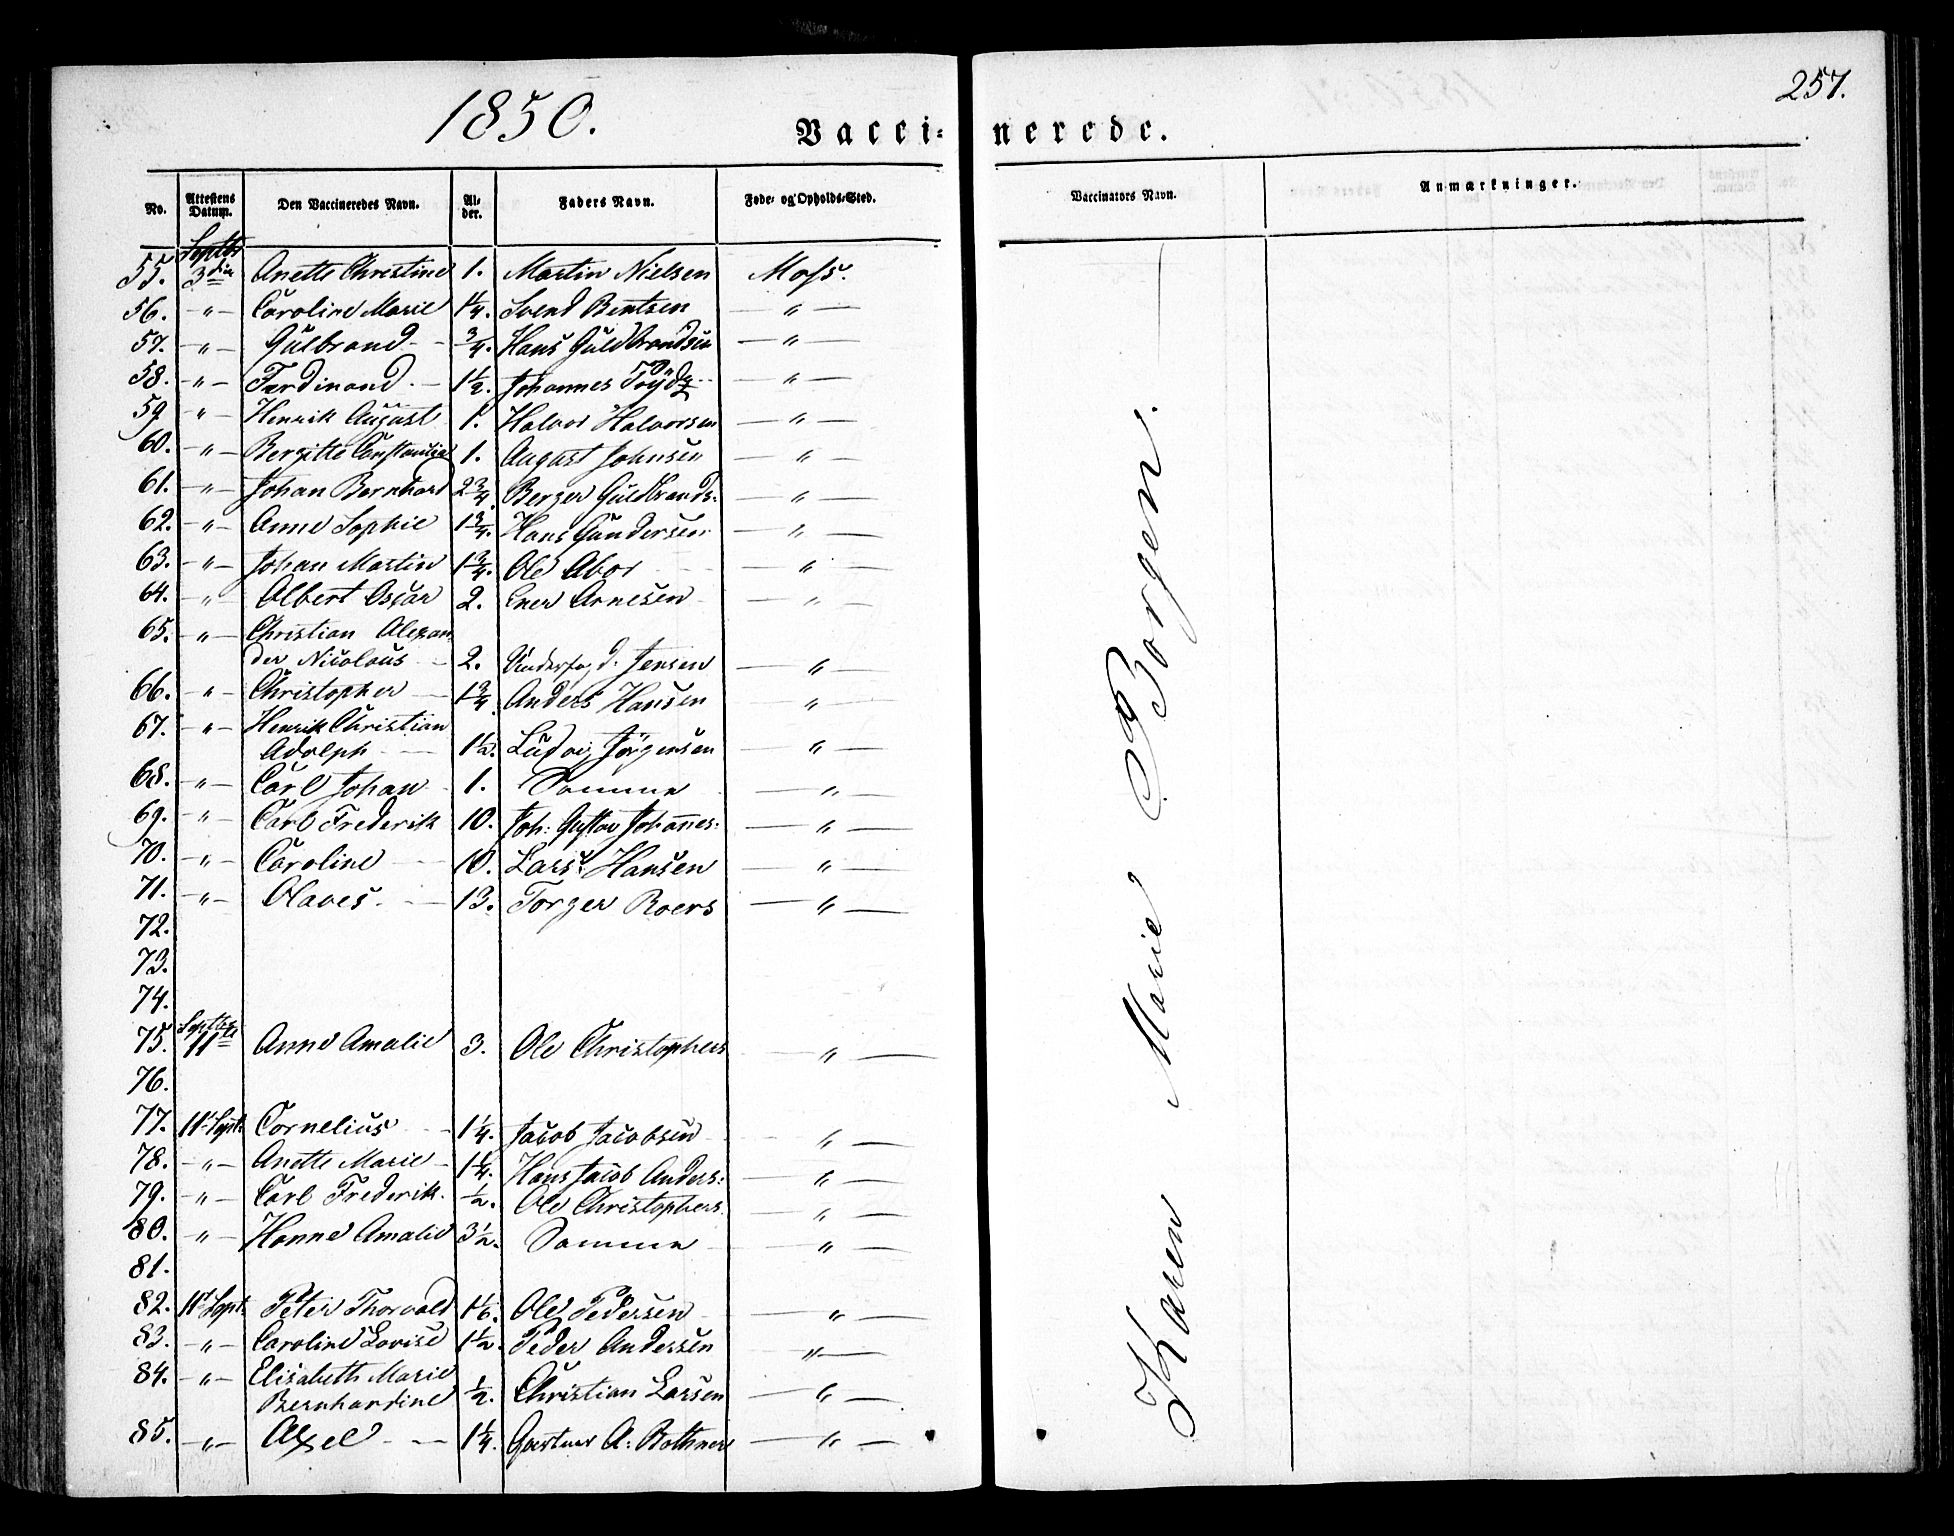 257.
1850.
Vacci- nerede.
No. Attestens Datum. Den Vaccineredes Navn. Al-der. Faders Navn. Føde- og Opholds-Sted. Vaccinators Navn. Anmærkninger.
Septbr
55. 3die Anette Christine 1. Martin Nielsen Moss.
56. -"- Caroline Marie 1¼. Svend Bentsen —"—
57. -"- Gulbrand ¾. Hans Guldbrandsen —"—
58. -"- Ferdinand 1½. Johannes —"—
59. " Henrik August 1. Halvor Halvorsen —"—
60. -"- Bergitte Constancia 1. August Johnsen "—
61. -"- Johan Bernhard 2¾. Berger Guldbrands: —"—
62. -"- Anne Sophie 1¾. Hans Gundersen —"—
63. -"- Johan Martin 1¾. Ole Abor —"—
64. " Albert Oscar 2. Ener Arnesen —"—
65. -"- Christian Alexan
der Nicolaus 2. d. Jensen —"—
66. -"- Christopher 1¾. Anders Hansen —"—
67. -"- Henrik Christian
Adolph 1½. Ludvig Jörgensen —"—
68. -"- Carl Johan 1. Samme —"—
69. -"- Carl Frederik 10. Joh: Gustav Johannes: —"—
70. -"- Caroline 10. Lars Hansen —"—
71. -"- Olaves. 13. Torger Roers —"—
72.
73.
74.
Septbr
75. 11te Anne Amalie 3. Ole Christophers —"—
76.
77. 11' Sept: Cornelius 1¼. Jacob Jacobsen —"—
78. -"- Anette Marie 1¼. Hans Jacob Anders: —"—
79. -"- Carl Frederik. ½. Ole Christophers. —"—
80. -"- Hanne Amalie 3½. Samme —"—
81.
82. 11' Sept: Peter Thorvald 1⅙. Ole Pedersen —"—
83. -"- Caroline Lovise 1½. Peder Andersen "—
84. -"- Elisabeth Marie
Bernhardine ½. Christian Larsen —"—
85. -"- Axel 1¼. Gartner A: Bothner —"—
Karen Marie Borgen.